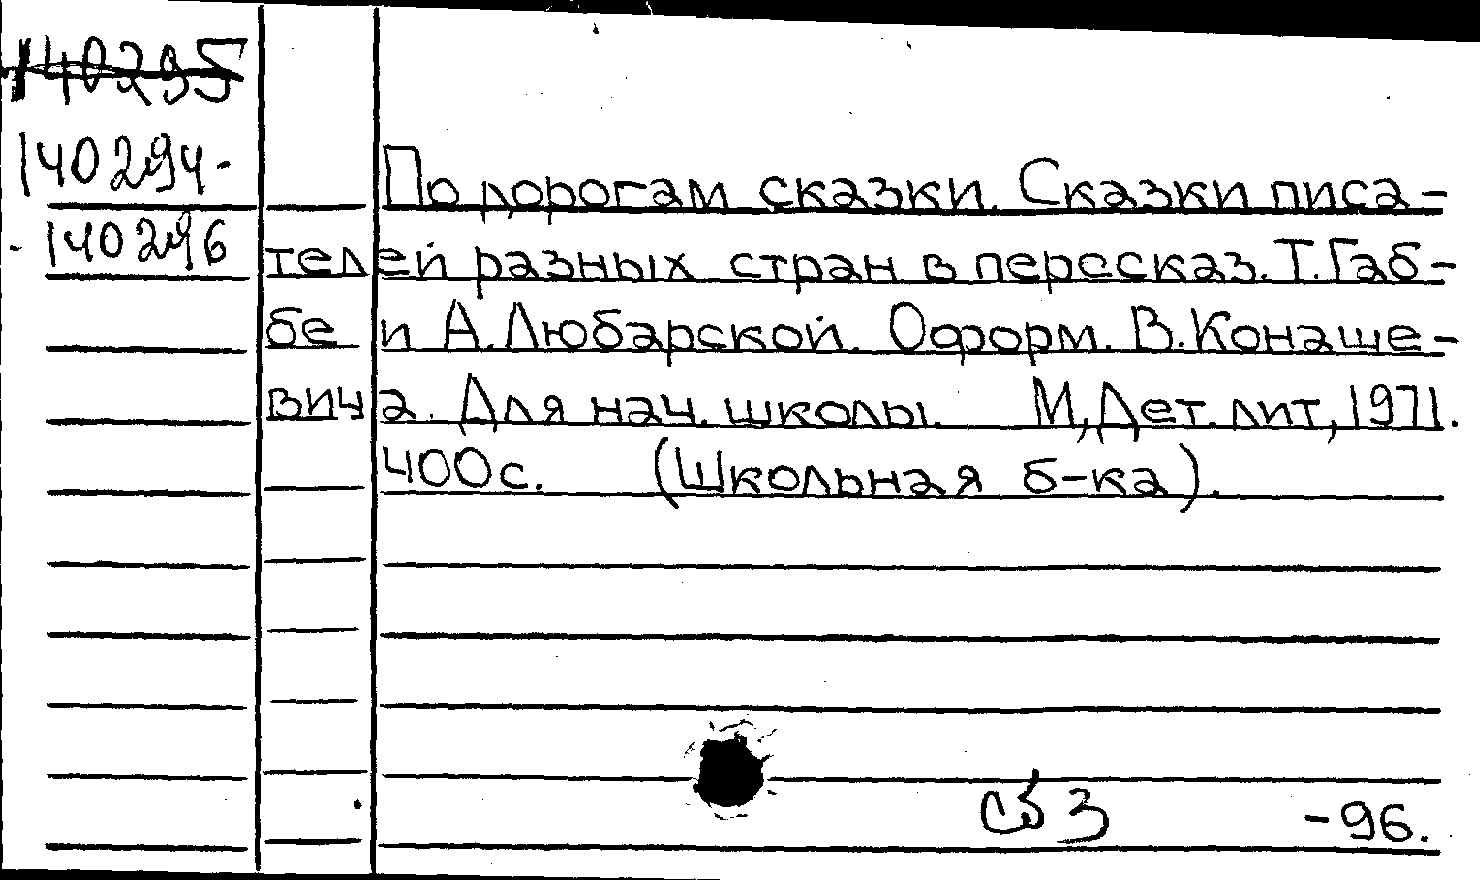 140295
140294-
По дорогам сказки. Сказки писа-
-140296
телей разных стран в перессказ. Т. Габ-
бе и А. Любарской. Оформ. В. Конаше-
вича. Для нач. школы. М, Дет. лит, 1971.
400 с. (Школьная б-ка).
сб 3 -96.